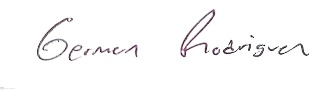 German Rodriguez